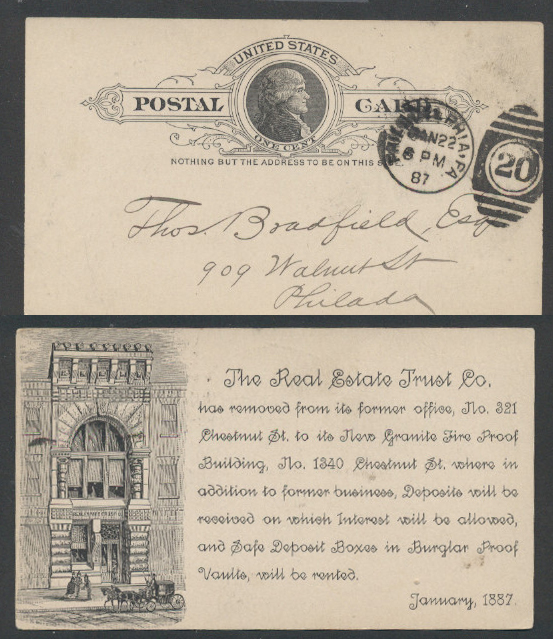 UNITED STATES
POSTAL CARD
ONE CENT
NOTHING BUT THE ADDRESS TO BE ON THIS SIDE.
PHILADELPHIA, PA
JAN 22
6 PM
87
20
Thos. Bradfield, Esq
909 Walnut St
Philada
The Real Estate Trust Co,
has removed from its former office, No. 321
Chestnut St. to its New Granite Fire Proof
Building, No. 1340 Chestnut St. where in
addition to former business, Deposits will be
received on which Interest will be allowed,
and Safe Deposit Boxes in Burglar Proof
Vaults, will be rented.
January, 1887.